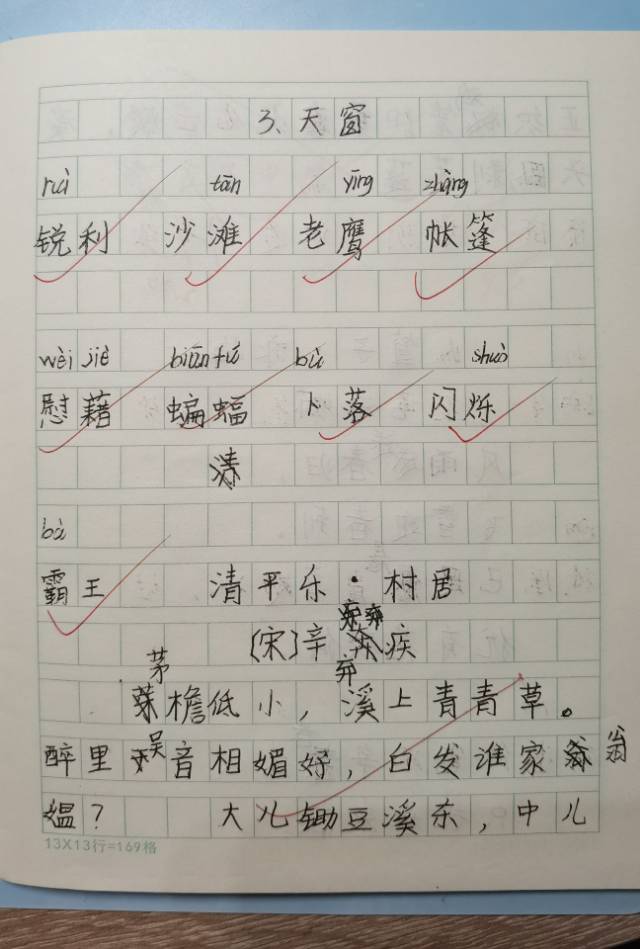 3、天窗
ruì tān yīng zhàng
锐利 沙滩 老鹰 帐篷
wèi jiè biān fú bǔ shuò
慰藉 蝙蝠 卜落 闪烁
bà
霸王 清平乐·村居
[宋]辛弃疾
茅檐低小，溪上青青草。
醉里吴音相媚好，白发谁家翁
媪？ 大儿锄豆溪东，中儿
13X13行=169格